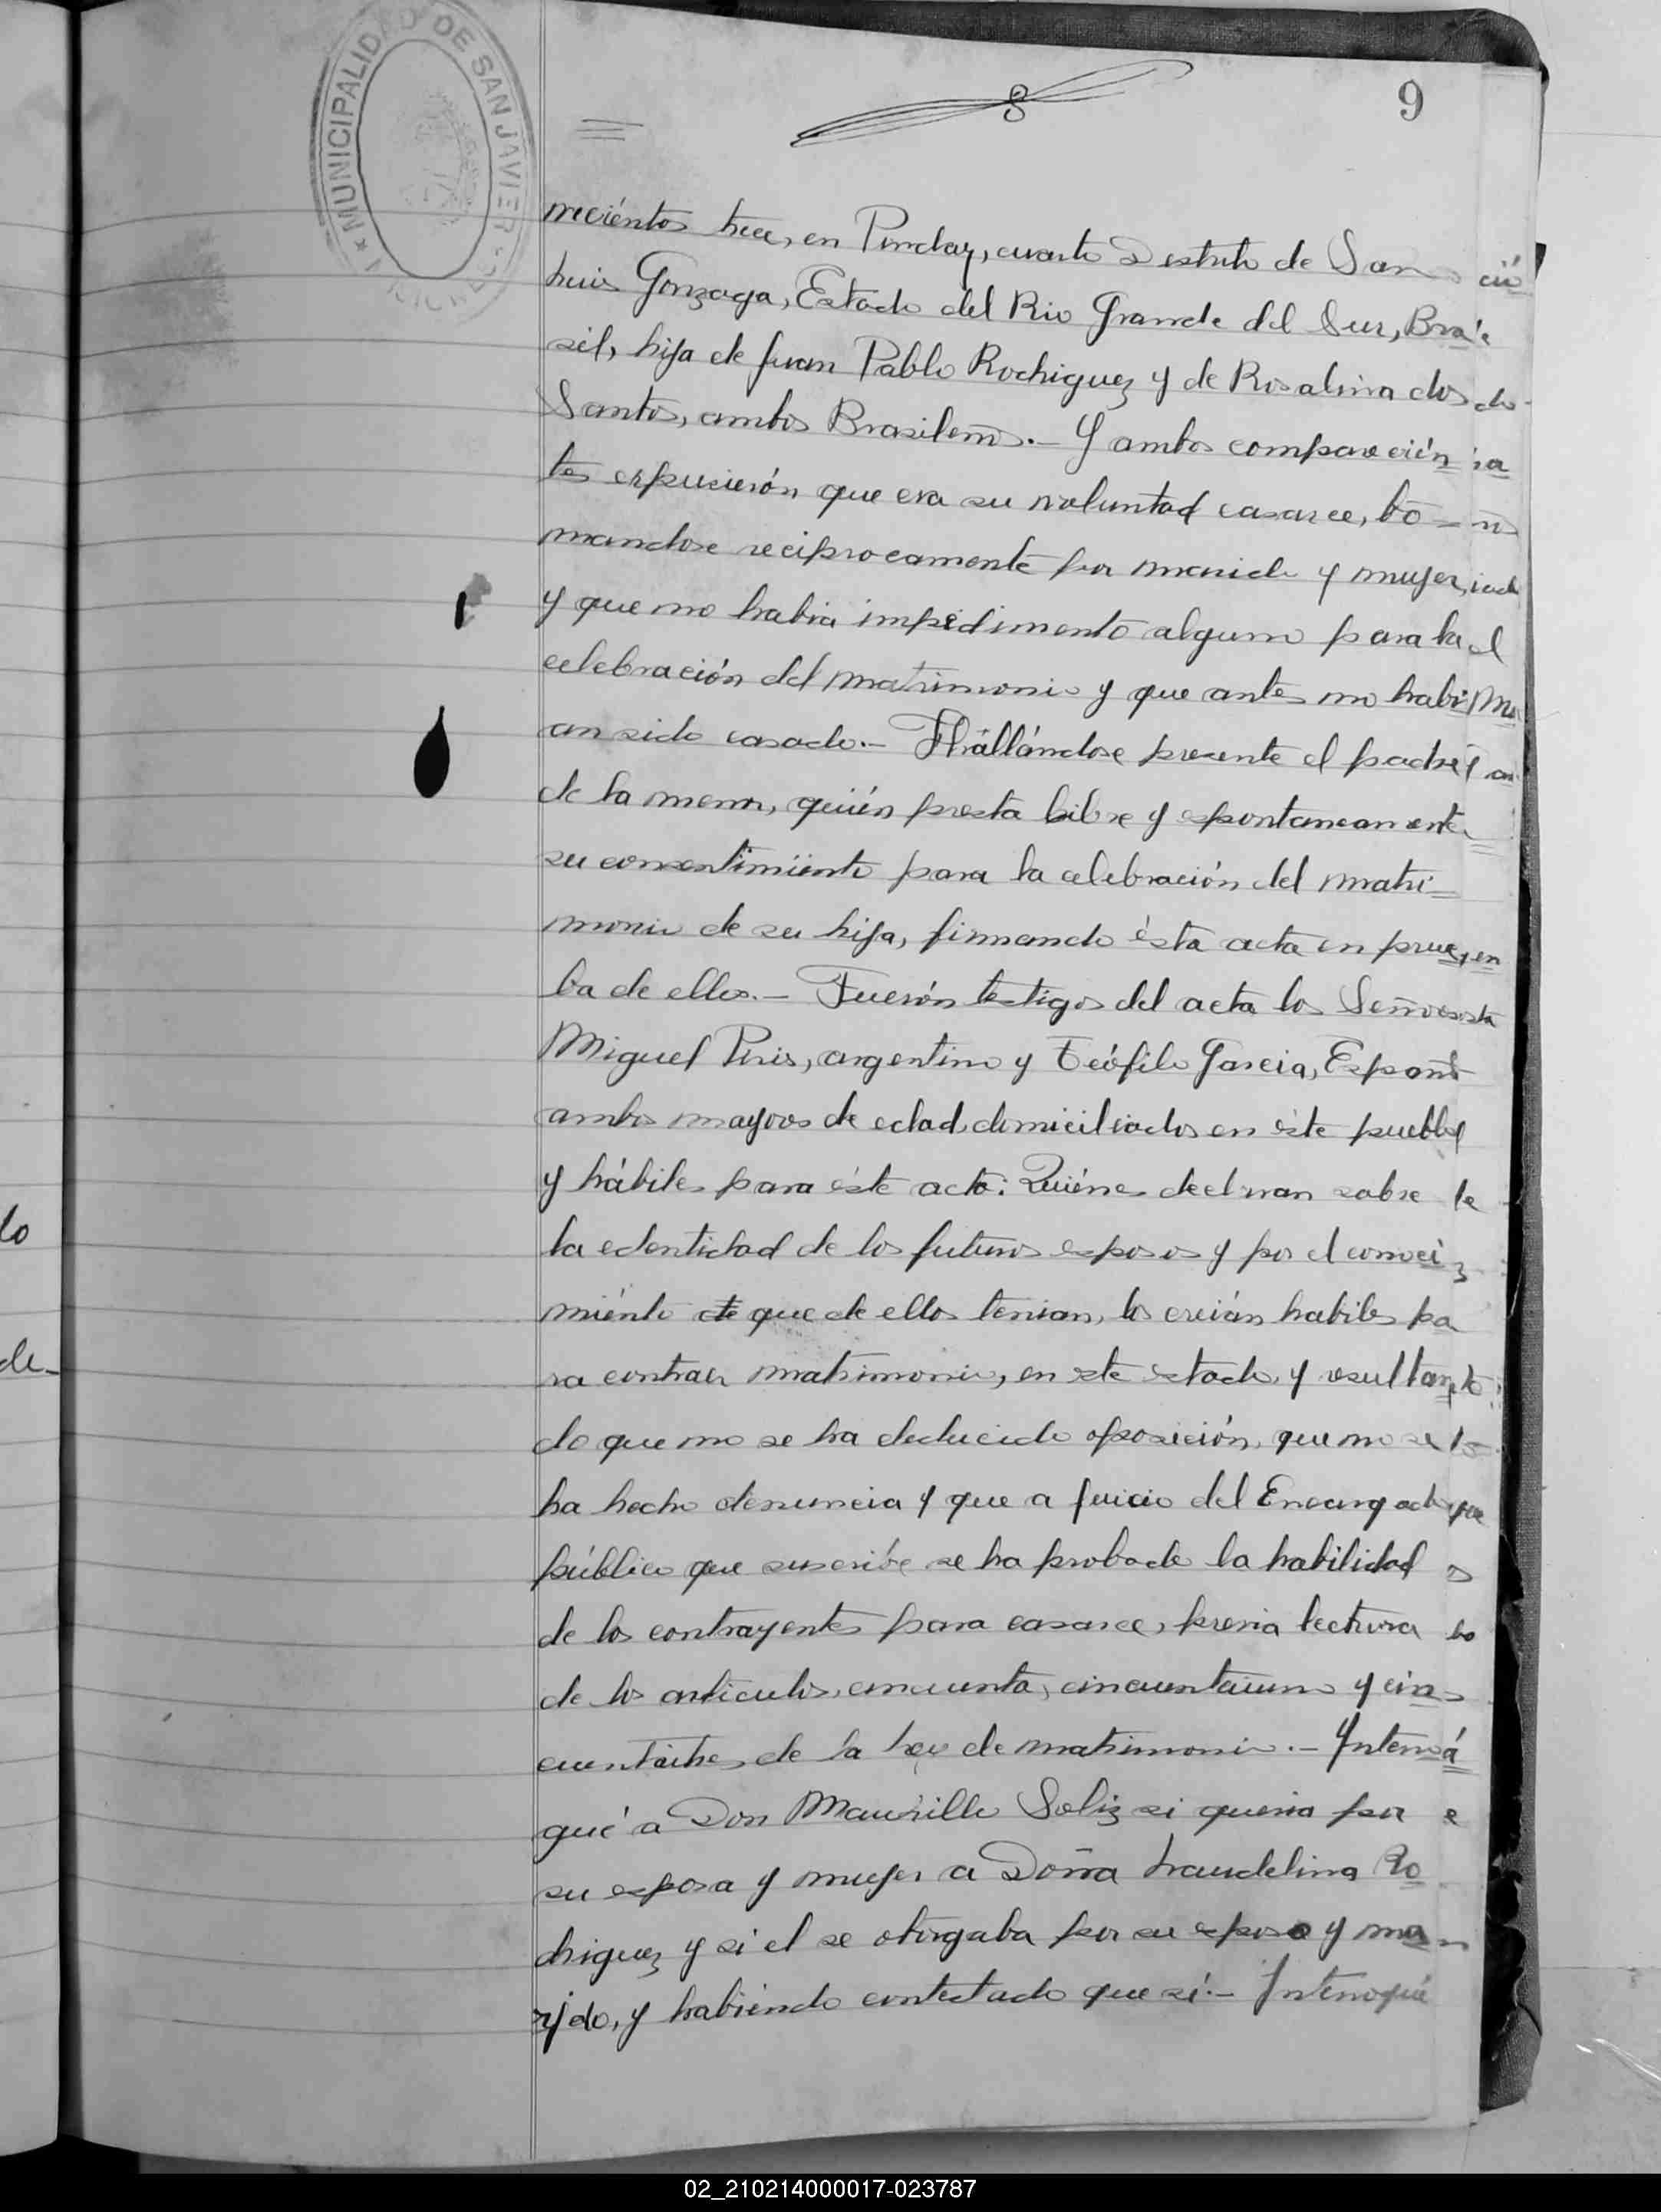 MUNICIPALIDAD DE SAN JAVIER
8
9
veciéntos trece, en Pinday, cuarto Destrito de San
Luis Gonzaga, Estado del Rio Grande del Sur, Bra
sil, hija de Juan Pablo Rodriguez y de Rosalina dos
Santos, ambos Brasileros.- Y ambos comparecién
tes expusierón que era su voluntad casarce, to-
mandose reciprocamente por marido y mujer,
y que no habia impedimento alguno para la
celebración del matrimonio y que antes no habi
an sido casado.- Hállándose presente el padre
de la menor, quién presta libre y espontaneamente
su consentimiénto para la celebración del matri-
monio de su hija, firmando ésta acta en prue
ba de ello.- Fuerón testigos del acta los Señores
Miguel Piris, argentino y Teófilo Garcia, Español
ambos mayores de edad, domiciliados en éste pueblo
y hábiles para éste acto: Quiénes declaran sobre
la edentidad de los futuros esposos y por el conoci
miénto de que de ellos tenian, los creián habiles pa
ra contraer matrimonio, en este estado, y resultan
do que no se ha deducido oposición, que no se
ha hecho denuncia y que a juicio del Encargado
público que suscribe se ha probado la habilidad
de los contrayentes para casarce, previa lectura
de los articulos, cincuenta, cincuentaiuno y cin
cuentaitres, de la Ley de matrimonio.- Interro
gué a Don Maurillo Soliz si queria por
su esposa y mujer a Doña Laudelina Ro
driguez y si el se otorgaba por su esposo y ma
rido, y habiéndo contestado que sí.- Interrogué
lo
de-
02_210214000017-023787